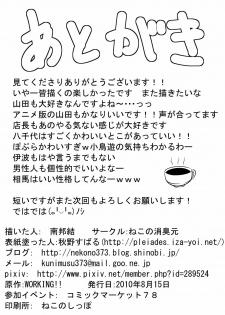 あとがき
見てくださりありがとうございます！！
いや一皆描くの楽しかったです　また描きたいな
山田も大好きなんですよね〜･･･っっ
アニメ版の山田もかなりいいです！！声が合ってます
店長もあのやる気ない感じが大好きです
八千代はすごくかわいいとこがあっていい！！
ぽぷらかわいすぎw小鳥遊の気持ちわかるわー
伊波もはや言うまでもない
男性人も個性的でいいよな
相馬はいい性格してんなーｗｗｗ
短いですがまた次回もよろしくお願いします！
ではでは
描いた人：　南邦結　　サークル：ねこの消臭元
表紙塗った人：秋野すばる(http://pleiades.iza-yoi.net/)
ブログ：　http://nekono373.blog.shinobi.jp/
メール：　kunimusu373@mail.goo.ne.jp
pixiv：　http://www.pixiv.net/member.php?id=289524
原作:WORKING!!　　発行日：2010年8月15日
参加イベント：　コミックマーケット７８
印刷所：　ねこのしっぽ